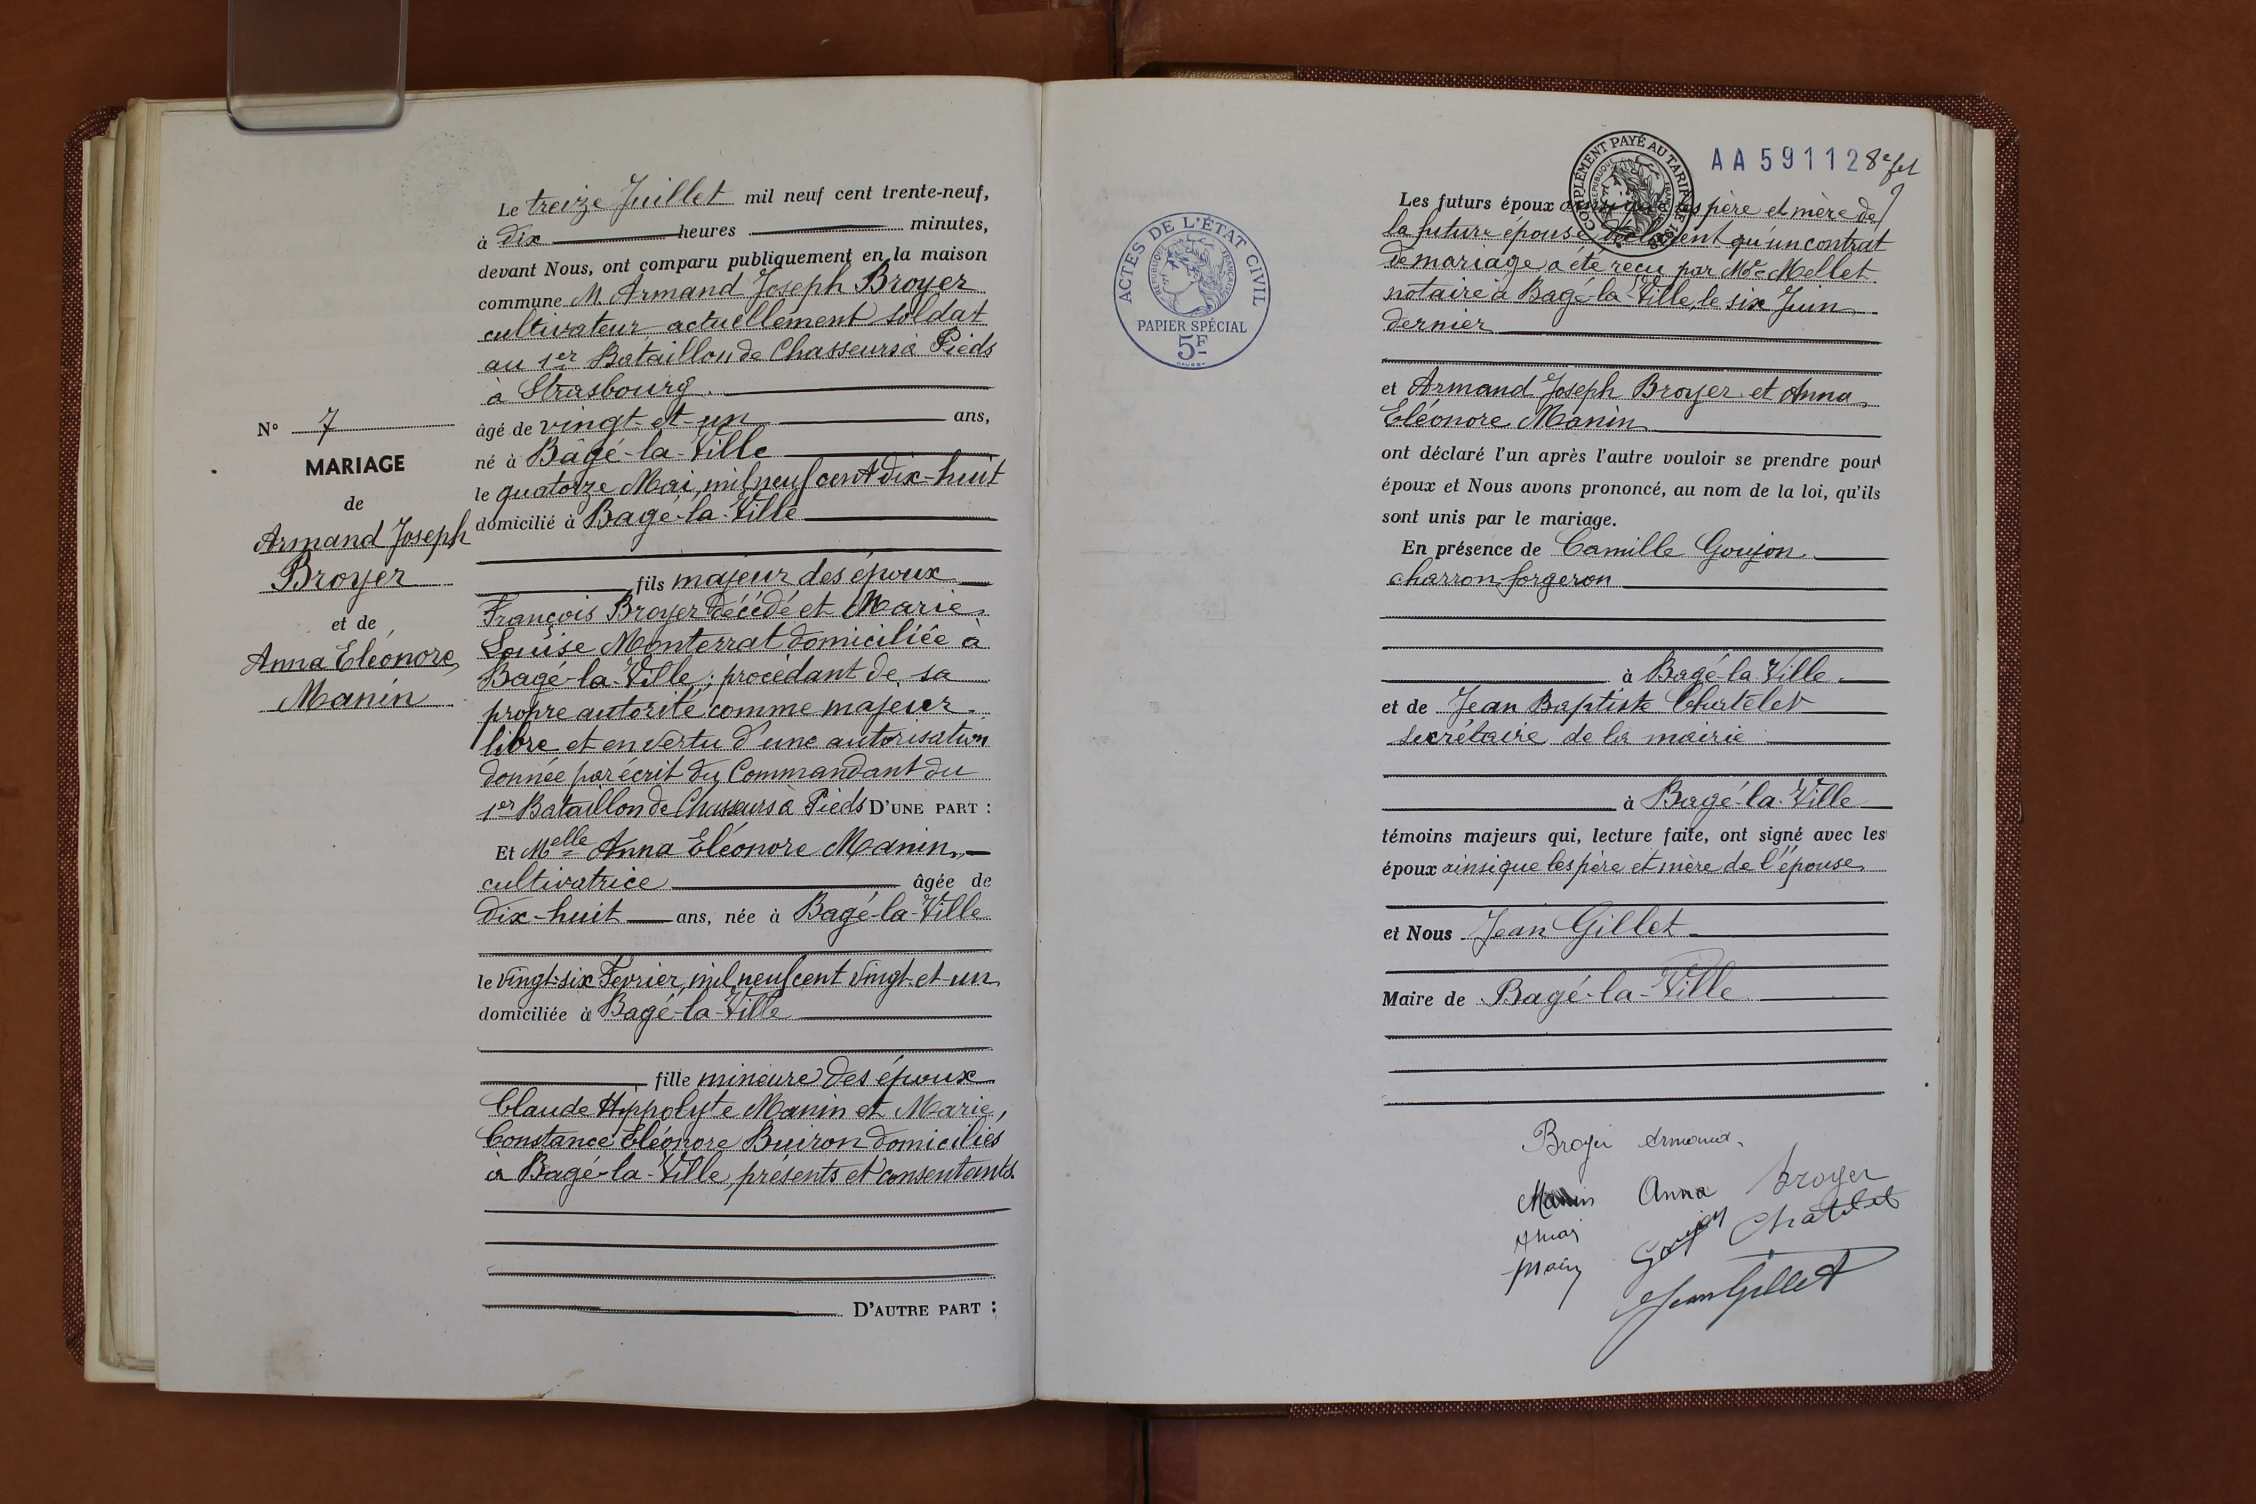 N° 7
MARIAGE
de
Armand Joseph
Broyer
et de
Anna Eléonore
Manin
Le treize Juillet mil neuf cent trente-neuf,
à dix heures minutes,
devant Nous, ont comparu publiquement en la maison
commune M. Armand Joseph Broyer
cultivateur actuellement soldat
au 1er Bataillon de Chasseurs à Pieds
à Strasbourg.
âgé de vingt-et-un ans,
né à Bâgé-la-Ville
le quatorze Mai, mil neuf cent dix-huit
domicilié à Bagé-la-Ville
fils majeur des époux
François Broyer décédé et Marie
Louise Monterrat domiciliée à
Bagé-la-Ville; procédant de sa
propre autorité comme majeur
libre et en vertu d'une autorisation
donnée par écrit du Commandant du
1er Bataillon de Chasseurs à Pieds D'UNE PART :
Et Melle Anna Eléonore Manin,
cultivatrice âgée de
dix-huit ans, née à Bagé-la-Ville
le vingt-six Fevrier, mil neuf cent vingt-et-un
domiciliée à Bagé-la-Ville
fille mineure des époux
Claude Hippolyte Manin et Marie,
Constance Eléonore Buiron domiciliés
à Bagé-la-Ville, présents et consentants.
D'AUTRE PART :
ACTES DE L'ÉTAT CIVIL
RÉPUBLIQUE FRANÇAISE
PAPIER SPÉCIAL
5F
COMPLÉMENT PAYÉ AU TARIF
AA 59112 8e fet
Les futurs époux ainsi que les père et mère de
la future épouse déclarent qu'un contrat
de mariage a été reçu par Me Mellet
notaire à Bagé-la-Ville, le six Juin
dernier
et Armand Joseph Broyer et Anna
Eléonore Manin
ont déclaré l'un après l'autre vouloir se prendre pour
époux et Nous avons prononcé, au nom de la loi, qu'ils
sont unis par le mariage.
En présence de Camille Goujon
charron forgeron
à Bagé-la-Ville
et de Jean Baptiste Chatelet
secrétaire de la mairie
à Bagé-la-Ville
témoins majeurs qui, lecture faite, ont signé avec les
époux ainsi que les père et mère de l'épouse
et Nous Jean Gillet
Maire de Bagé-la-Ville
Broyer Armand.
Manin Anna Broyer
Goujon Chatelet
Jean Gillet